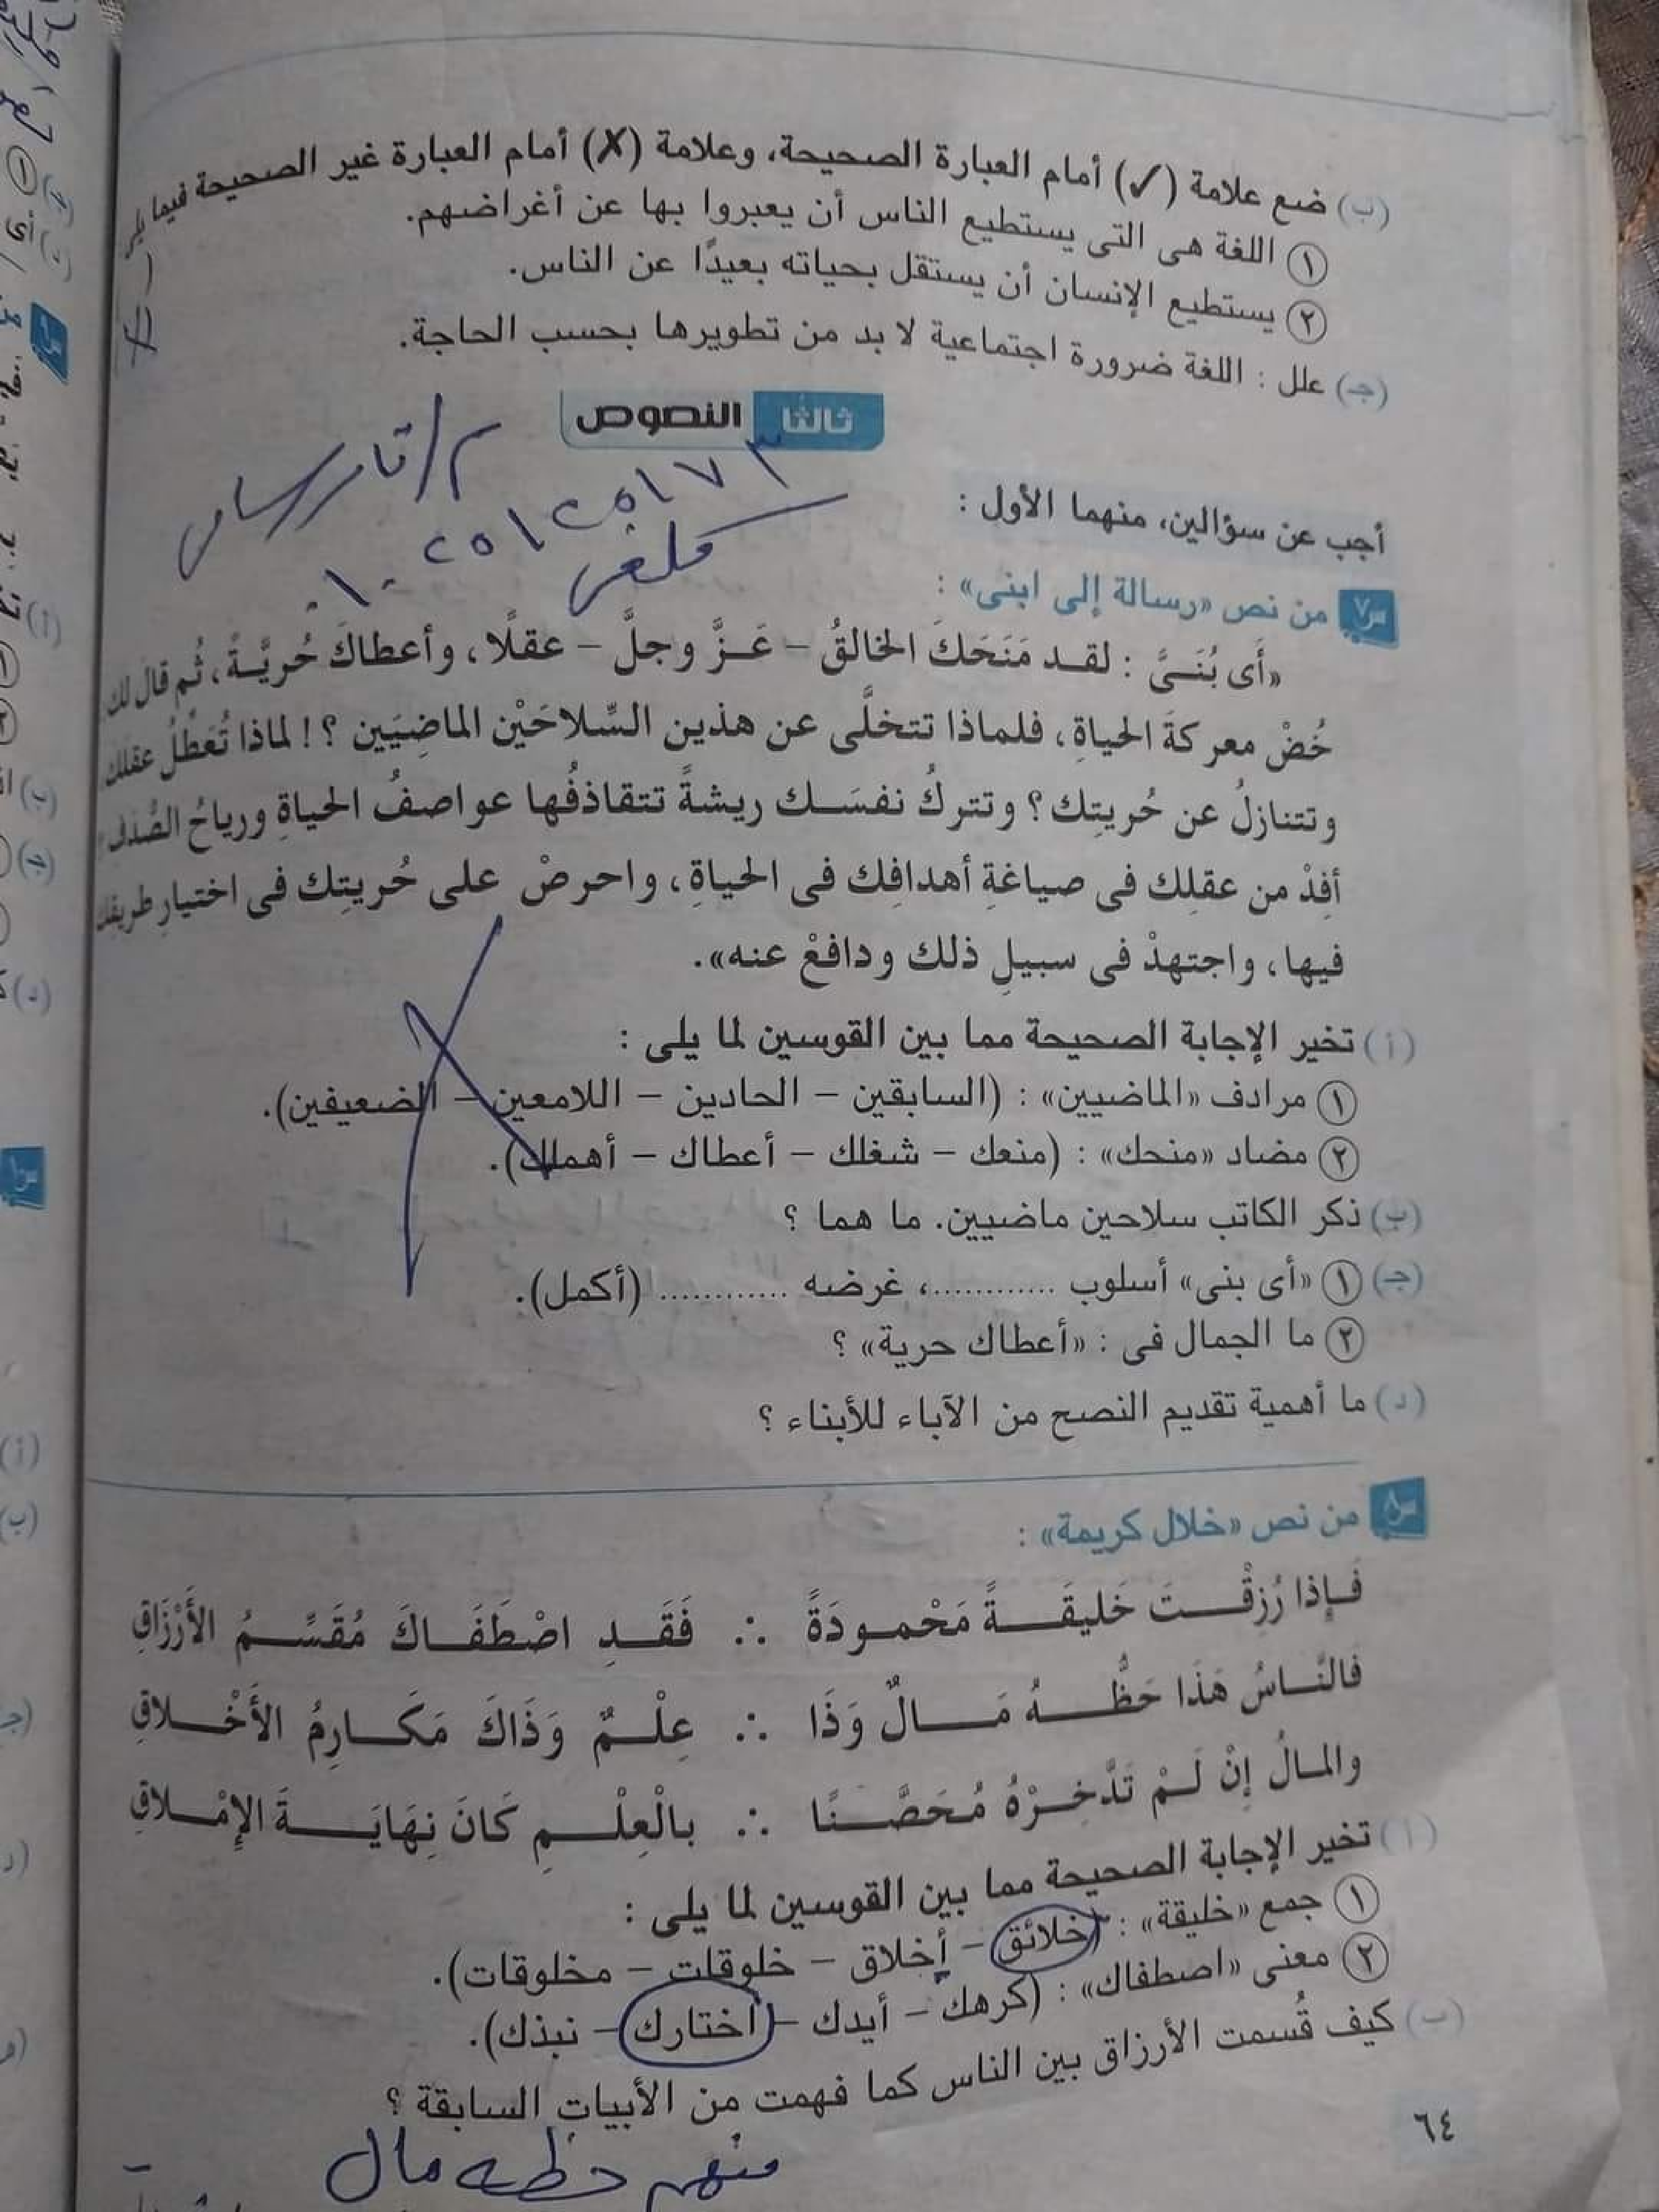 (ب) ضع علامة (✓) أمام العبارة الصحيحة، وعلامة (✗) أمام العبارة غير الصحيحة فيما يلى
١ اللغة هى التى يستطيع الناس أن يعبروا بها عن أغراضهم.
٢ يستطيع الإنسان أن يستقل بحياته بعيدًا عن الناس.
(جـ) علل : اللغة ضرورة اجتماعية لا بد من تطويرها بحسب الحاجة.
ثالثًا النصوص
أجب عن سؤالين، منهما الأول :
س٧ من نص «رسالة إلى ابنى» :
«أَى بُنَىَّ : لقد مَنَحَكَ الخالقُ – عَزَّ وجلَّ – عقلًا، وأعطاكَ حُريَّةً، ثُم قال لك
خُضْ معركةَ الحياةِ، فلماذا تتخلَّى عن هذين السِّلاحَيْن الماضِيَين ؟! لماذا تُعَطِّلُ عقلك
وتتنازلُ عن حُريتِك؟ وتتركُ نفسَك ريشةً تتقاذفُها عواصفُ الحياةِ ورياحُ الصُّدَف؟
أفِدْ من عقلِك فى صياغةِ أهدافِك فى الحياةِ، واحرصْ على حُريتِك فى اختيارِ طريقِك
فيها، واجتهدْ فى سبيلِ ذلك ودافعْ عنه».
(أ) تخير الإجابة الصحيحة مما بين القوسين لما يلى :
١ مرادف «الماضيين» : (السابقين – الحادين – اللامعين – الضعيفين).
٢ مضاد «منحك» : (منعك – شغلك – أعطاك – أهملك).
(ب) ذكر الكاتب سلاحين ماضيين. ما هما ؟
(جـ) ١ «أى بنى» أسلوب ............، غرضه ............ (أكمل).
٢ ما الجمال فى : «أعطاك حرية» ؟
(د) ما أهمية تقديم النصح من الآباء للأبناء ؟
س٨ من نص «خلال كريمة» :
فَإِذا رُزِقْتَ خَليقَةً مَحْمودَةً ∴ فَقَدِ اصْطَفَاكَ مُقَسِّمُ الأَرْزَاقِ
فَالنَّاسُ هَذَا حَظُّهُ مَالٌ وَذَا ∴ عِلْمٌ وَذَاكَ مَكَارِمُ الأَخْلاقِ
والمالُ إِنْ لَمْ تَدَّخِرْهُ مُحَصَّنًا ∴ بالْعِلْمِ كَانَ نِهَايَةَ الإِمْلاقِ
(أ) تخير الإجابة الصحيحة مما بين القوسين لما يلى :
١ جمع «خليقة» : (خلائق – أخلاق – خلوقات – مخلوقات).
٢ معنى «اصطفاك» : (كرهك – أيدك – اختارك – نبذك).
(ب) كيف قُسمت الأرزاق بين الناس كما فهمت من الأبيات السابقة ؟
منهم حظه مال
٦٤